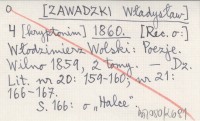 [ZAWADZKI Władysław]
4 [kryptonim] 1860. [Rec. o:]
Włodzimierz Wolski: Poezje.
Wilno 1859, 2 tomy. — Dz.
Lit. nr 20: 159-160; nr 21:
166-167.
S. 166: o „Halce".